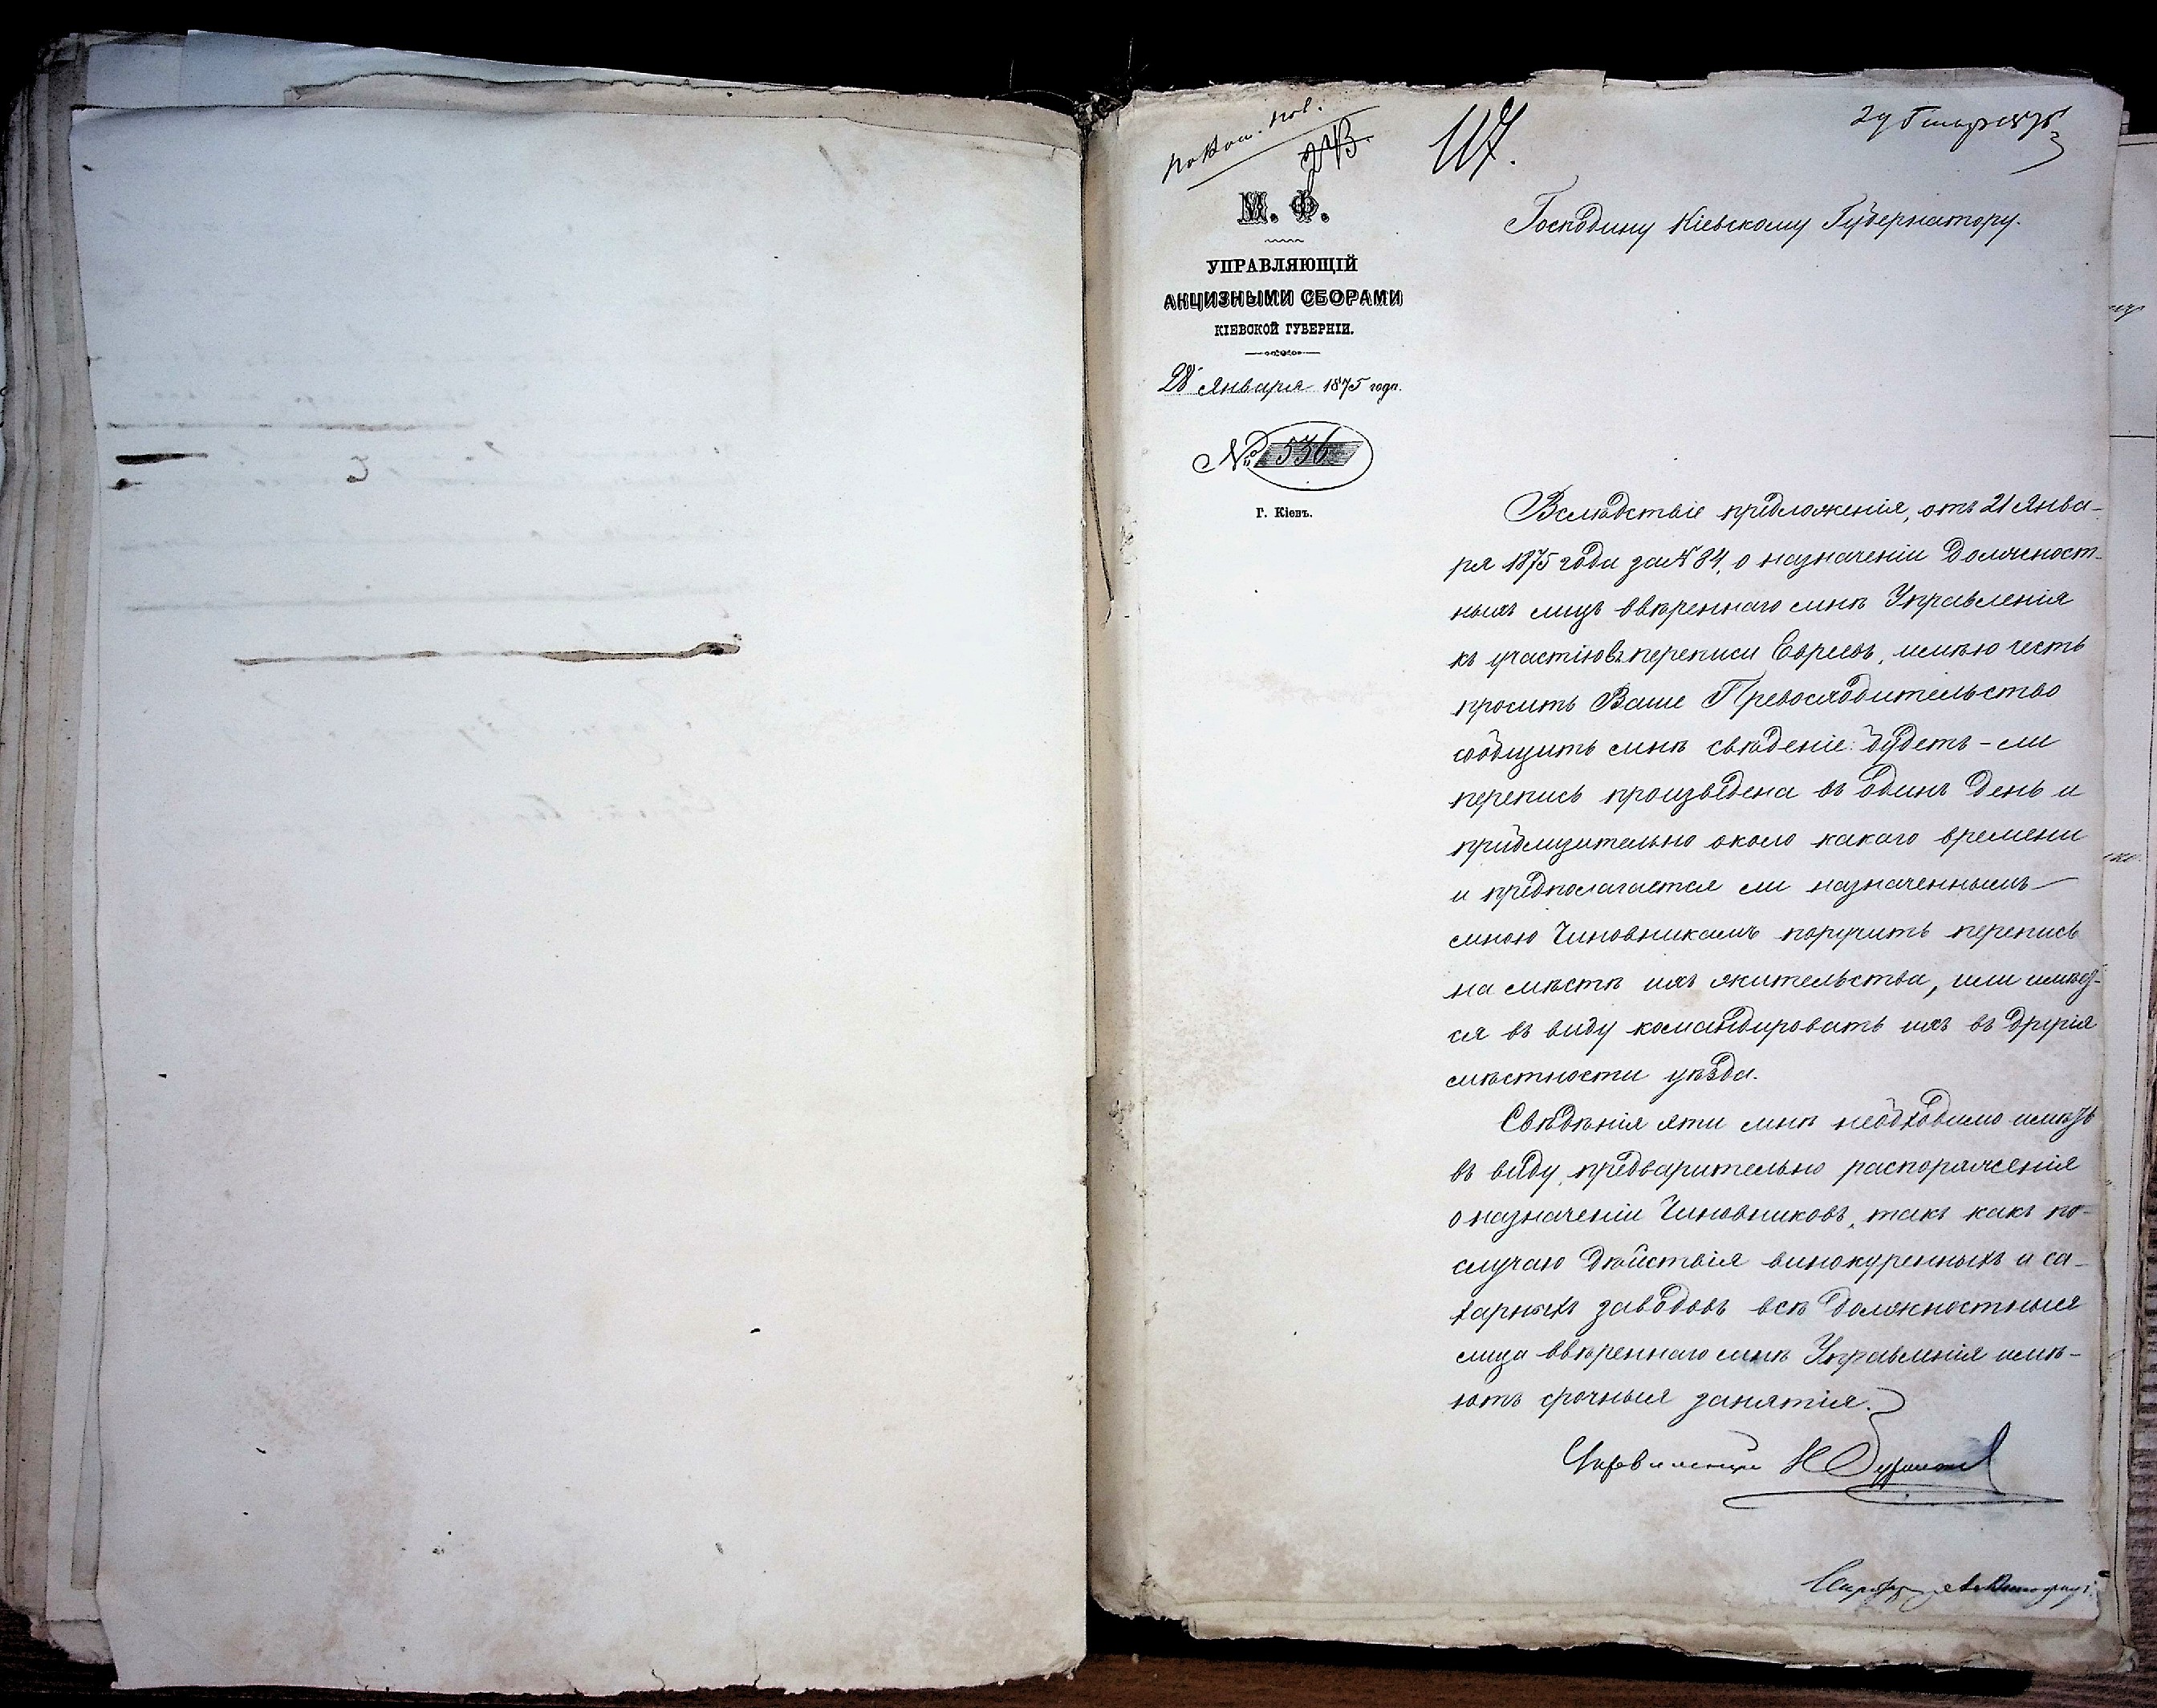 117.
М. Ф.
УПРАВЛЯЮЩІЙ
АКЦИЗНЫМИ СБОРАМИ
КІЕВСКОЙ ГУБЕРНІИ.
28 Января 1875 года.
№ 536
Г. Кіевъ.
Господину Кіевскому Губернатору.
Вслѣдствіе предложенія, отъ 21 Янва-
ря 1875 года за № 84, о назначеніи должност-
ныхъ лицъ ввѣреннаго мнѣ Управленія
къ участію въ переписи Евреевъ, имѣю честь
просить Ваше Превосходительство
сообщить мнѣ свѣденіе: будетъ-ли
перепись произведена въ одинъ день и
приблизительно около какаго времени
и предполагается ли назначеннымъ
мною Чиновникамъ поручить перепись
на мѣстѣ ихъ жительства, или имѣет-
ся въ виду командировать ихъ въ другія
мѣстности уѣзда.
Свѣдѣнія эти мнѣ необходимо имѣть
въ виду, предварительно распоряженія
о назначеніи Чиновниковъ, такъ какъ по-
случаю дѣйствія винокуренныхъ и са-
харныхъ заводовъ всѣ должностныя
лица ввѣреннаго мнѣ Управленія имѣ-
ютъ срочныя занятія.
Управляющій
Секретарь